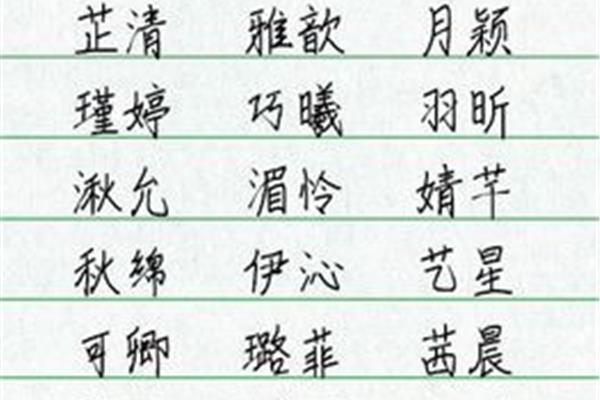 芷清 雅歆 月颖
瑾婷 巧曦 羽昕
湫允 湄怜 婧芊
秋绵 伊沁 艺星
可卿 璐菲 茜晨